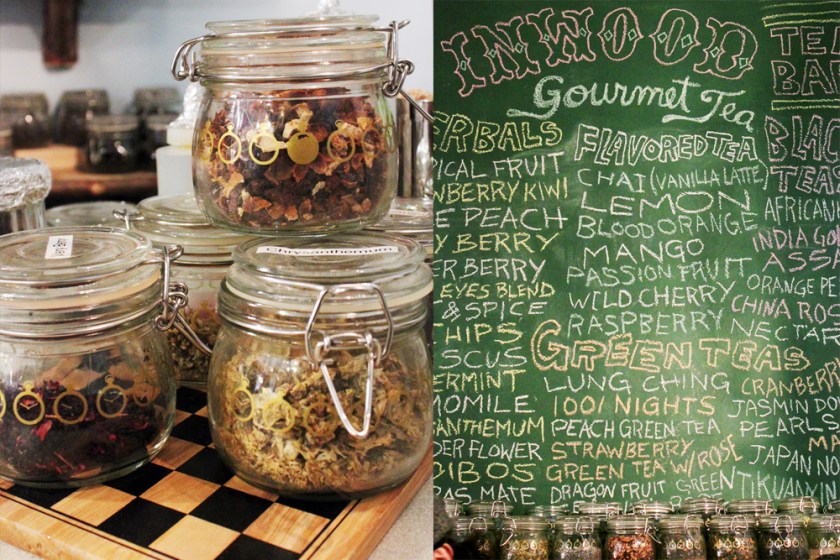 Chrysanthemum
INWOOD
Gourmet Tea
TEA
BAR
ERBALS
ICAL FRUIT
WBERRY KIWI
E PEACH
Y BERRY
ER BERRY
EYES BLEND
& SPICE
HIPS
ISCUS
ERMINT
MOMILE
ANTHEMUM
DER FLOWER
OIBOS
BAS MATE
FLAVORED TEA
CHAI (VANILLA LATTE)
LEMON
BLOOD ORANGE
MANGO
PASSION FRUIT
WILD CHERRY
RASPBERRY
BLACK
TEAS
AFRICAN
INDIA GO
ASSA
ORANGE PE
CHINA ROS
NECTAR
GREEN TEAS
LUNG CHING
1001 NIGHTS
PEACH GREEN TEA
STRAWBERRY
GREEN TEA W/ROSE
DRAGON FRUIT GREEN
CRANBERR
JASMIN DO
PEARLS
MI
JAPAN NO
TIKUANXIN